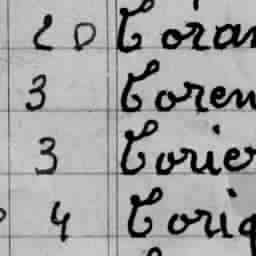 20 Coran
3 Coren
3 Corier
4 Coriq